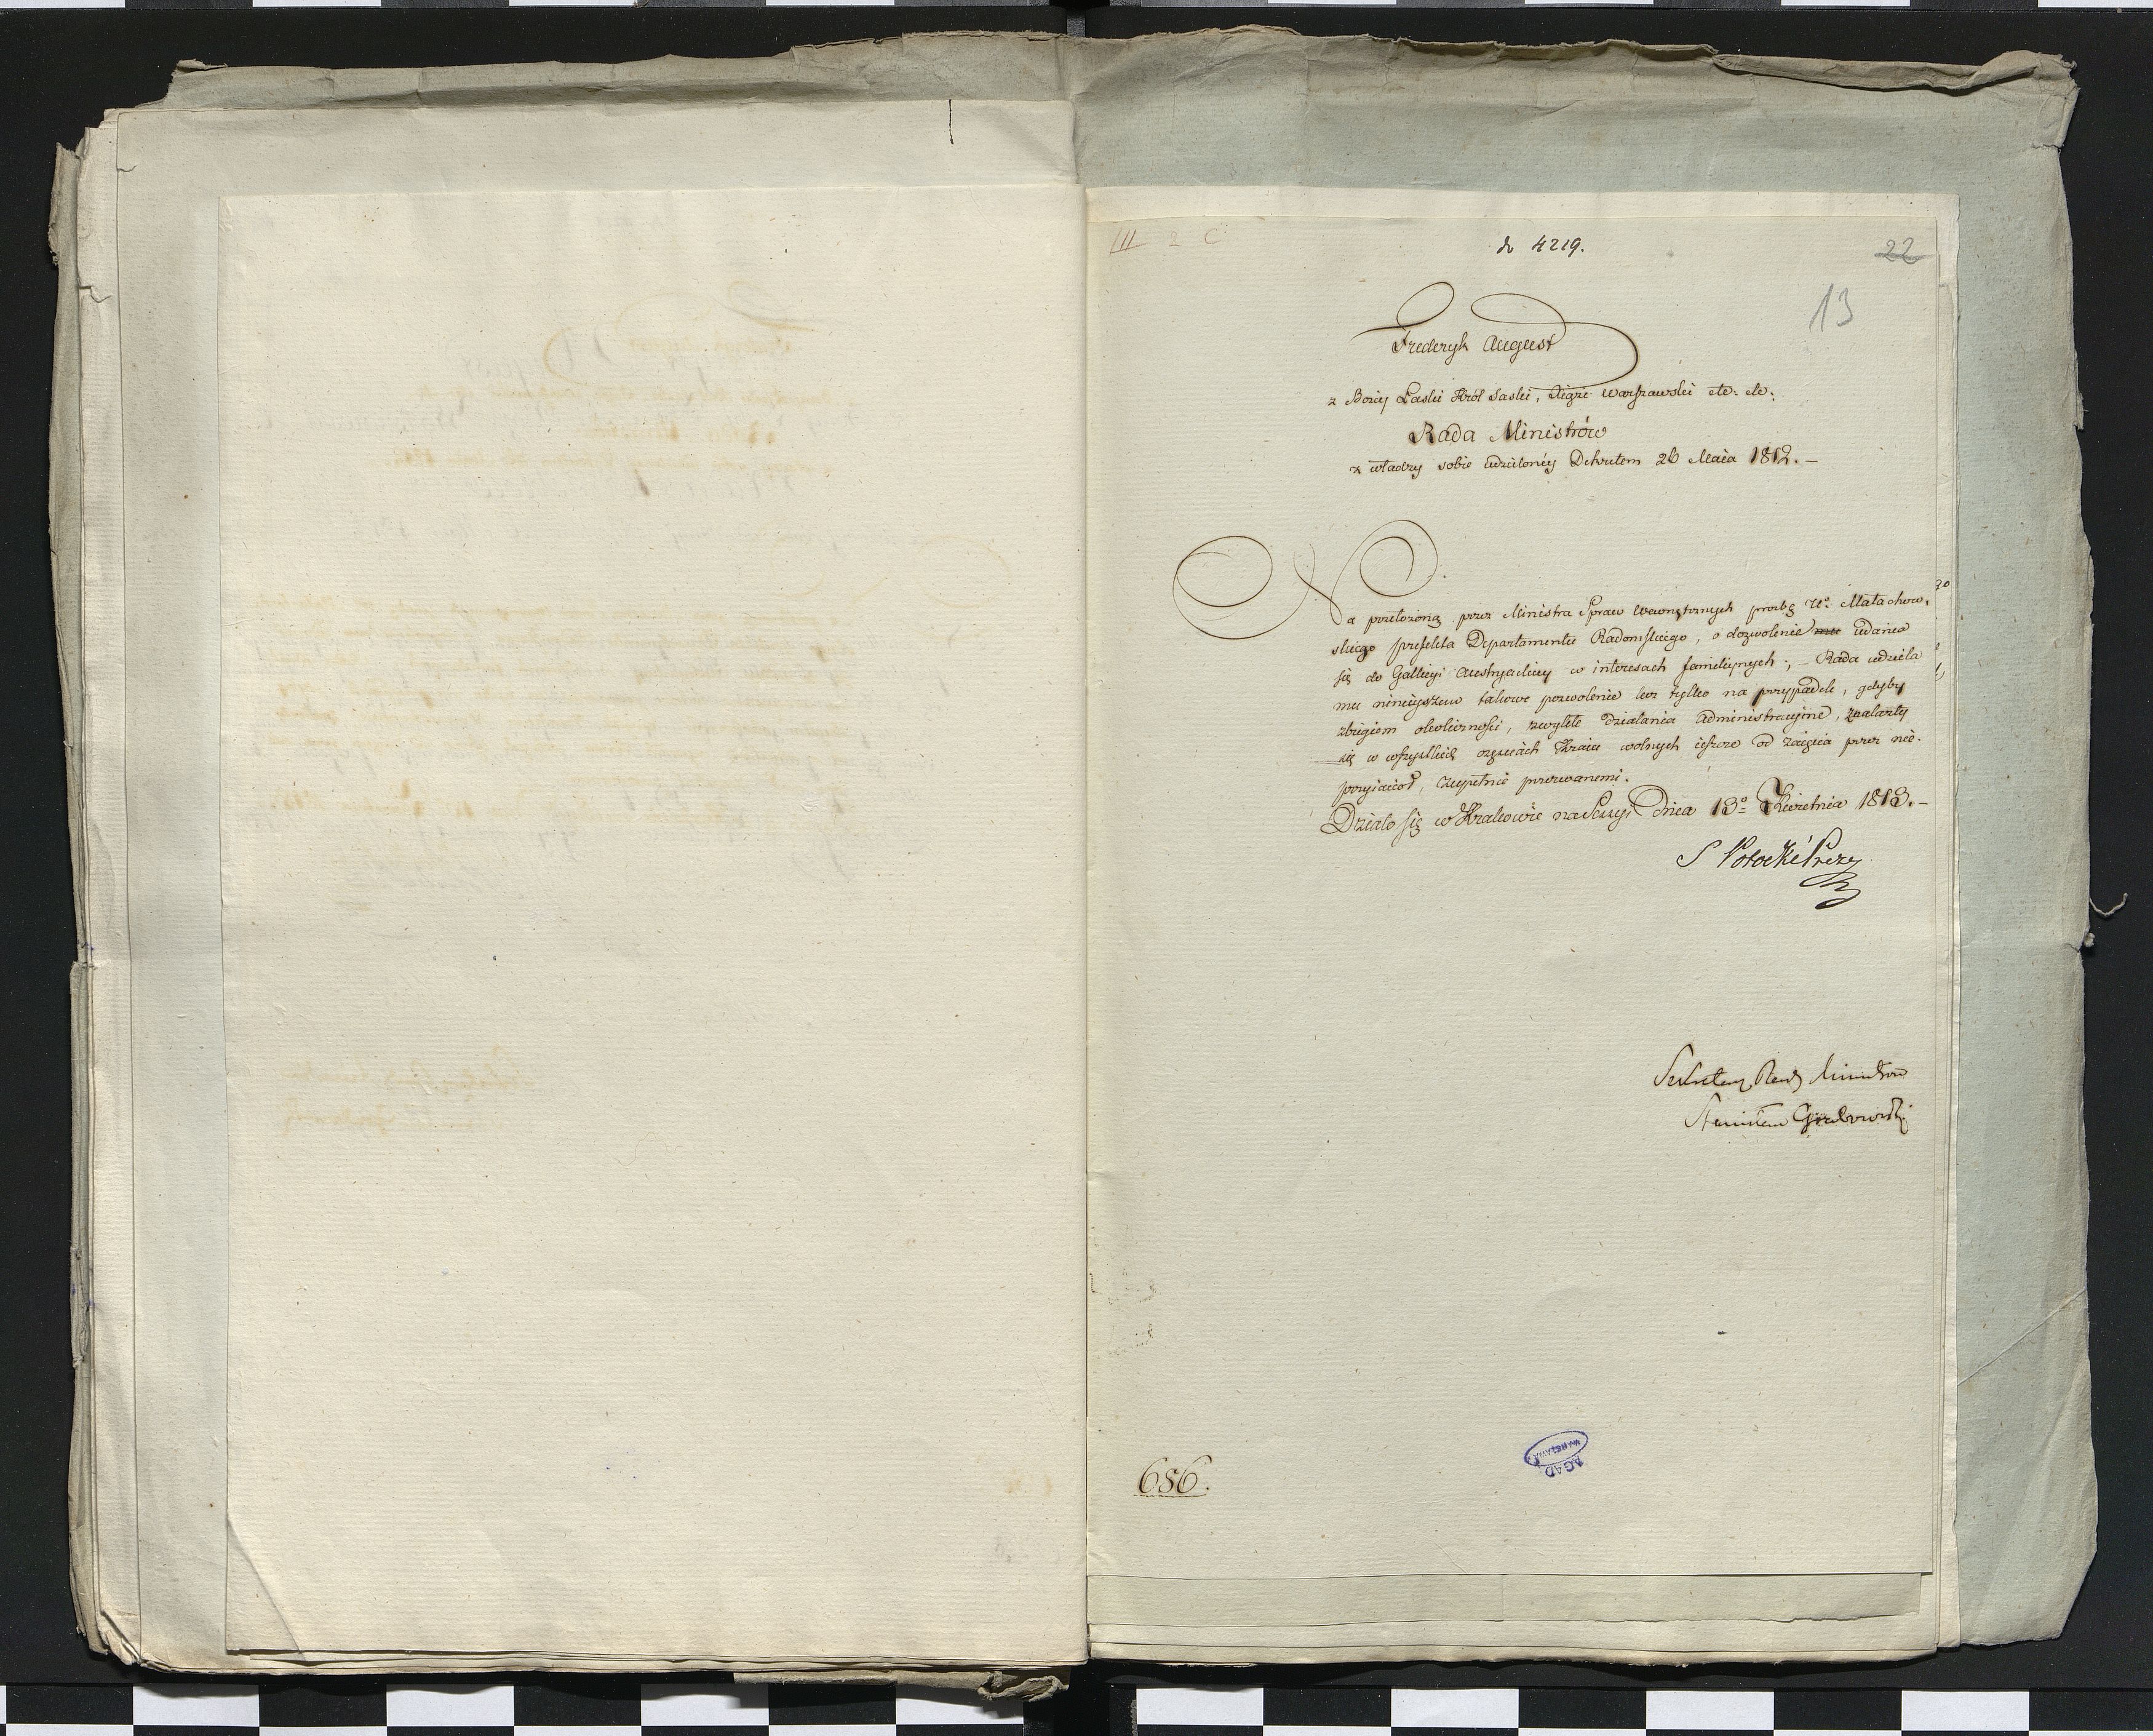 III 2 C
do 4219.
22
13
Frideryk August
z Bożéy Łaski Król Saski, Xiąże Warszawski etc: etc:
Rada Ministrów
z władzy sobie udzielonéy Dekretem 26 Maia 1812. –
Na przełożoną przez Ministra Spraw Wewnętrznych prozbę Wo. Małachow,
skiego Prefekta Departamentu Radomskiego, o dozwolenie mu udania
się do Gallicyi Austryackiey w interesach familiynych; – Rada udziela
mu nineiyszem takowe pozwolenie lecz tylko na przypadek, gdyby
zbiegiem okoliczności, zwykłe działania administracyine, znalazły
się w wszystkich częsciach Kraiu wolnych ieszcze od zaięcia przez nie-
przyiaciół, zupełnie przerwanemi.
Działo się w Krakowie na Sessyi Dnia 13o Kwietnia 1813. –
S Potocki Prezy
Sekretarz Rady Ministrow
Stanisław Grabowski
656.
AGAD
WARSZAWA